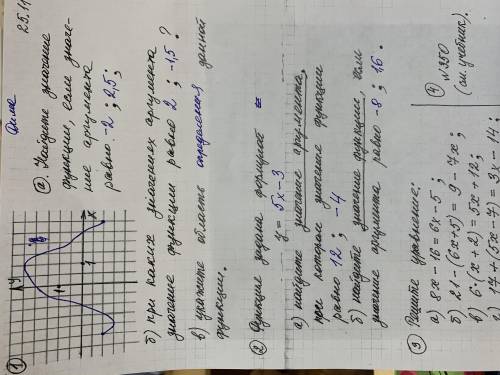 25.11
Дима
① а). Найдите значение
функции, если значе-
ние аргумента
равно -2; 2,5;
у
х
1
1
б) при каких значениях аргумента
значение функции равно 2; -1,5?
в) укажите область определения данной
функции.
② Функция задана формулой
у = 5х - 3
а) найдите значение аргумента,
при котором значение функции
равно 12; -4
б) найдите значение функции, если
значение аргумента равно -8; 1,6.
③ Решите уравнение:
а) 8х - 16 = 6х - 5;
б) 21 - (6х + 5) = 9 - 7х;
в) 6·(х + 2) = 5х + 12;
г) 17 - (5х - 7) = 3х - 14;
④ №350
(см. учебник).